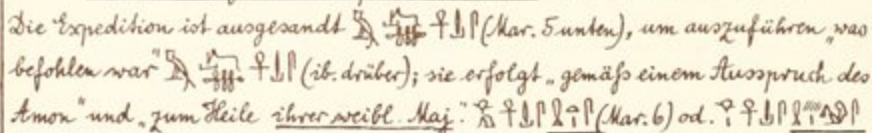 Die Expedition ist ausgesandt (Mar. 5 unten), um auszuführen „was
befohlen war" (ib. drüber); sie erfolgt „gemäß einem Ausspruch des
Amon" und „zum Heile ihrer weibl. Maj." (Mar. 6) od.